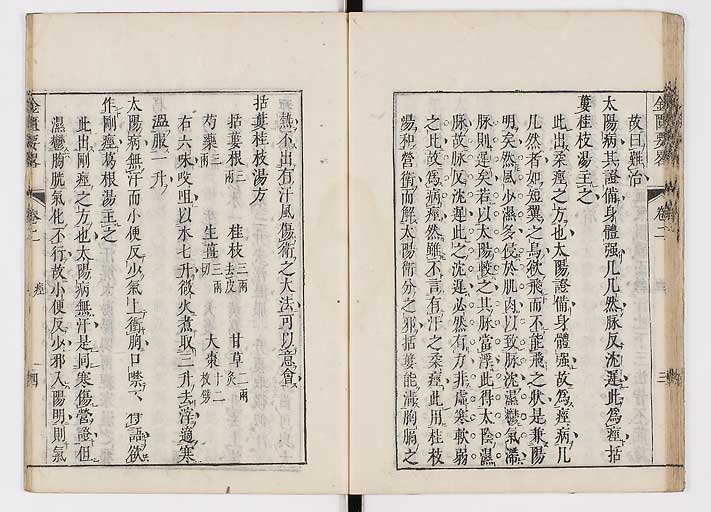 故曰難治
太陽病其證備身體强几几然脉反沈遲此爲痙括
蔞桂枝湯主之
此出柔痙之方也太陽證備身體强故爲痙病几
几然者如短翼之鳥欲飛而不能飛之狀是兼陽
明矣然風少濕多侵於肌肉以致脉沈濕鬱氣滯
脉則遲矣若以太陽較之其脉當浮此得太陰濕
脉故脉反沈遲此之沈遲必然有力非虛寒軟弱
之比故爲病痙然雖不言有汗之柔痙此用桂枝
湯和營衛而解太陽衛分之邪括蔞能清胸膈之
金匱要畧
卷二
三
熱不出有汗風傷衛之大法可以意會
括蔞桂枝湯方
括蔞根二兩 桂枝三兩去皮 甘草二兩炙
芍藥三兩 生薑三兩切 大棗十二枚劈
右六味㕮咀以水七升微火煮取三升去滓適寒
溫服一升
太陽病無汗而小便反少氣上衝胸口噤不得語欲
作剛痙葛根湯主之
此出剛痙之方也太陽病無汗是同寒傷營證但
濕鬱胸膀胱氣化不行故小便反少邪入陽明則氣
金匱要畧
卷二
四